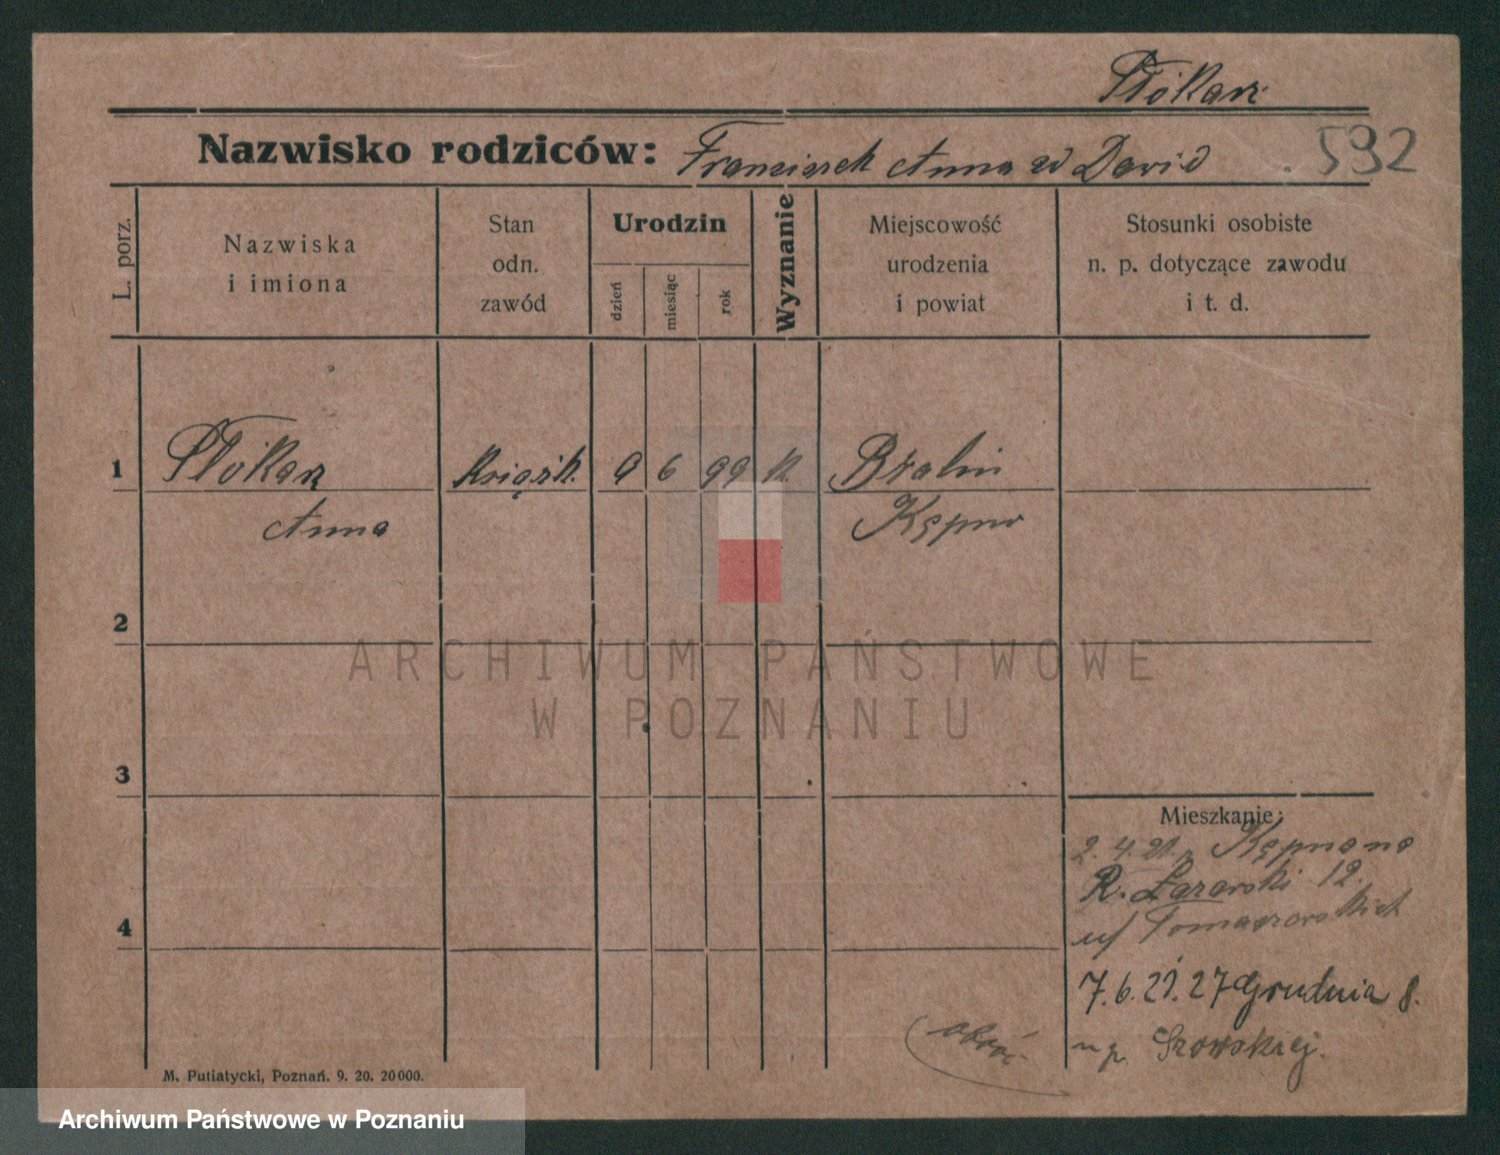 Płókarz
Nazwisko rodziców: Franciszek Anna zd David 592
L. porz.
Nazwiska
i imiona
Stan
odn.
zawód
Urodzin
dzień
miesiąc
rok
Wyznanie
Miejscowość
urodzenia
i powiat
Stosunki osobiste
n. p. dotyczące zawodu
i t. d.
1 Płókarz Książk. 9 6 99 k. Bralin
Anna Kępno
2
3
4
ARCHIWUM PAŃSTWOWE
W POZNANIU
Mieszkanie:
2. 4. 21. Kępna na
R. Łazarski 12.
u/ Tomaszewskich
7. 6. 21. 27 Grudnia 8.
np. Szowskiej.
obróć
M. Putiatycki, Poznań. 9. 20. 20 000.
Archiwum Państwowe w Poznaniu